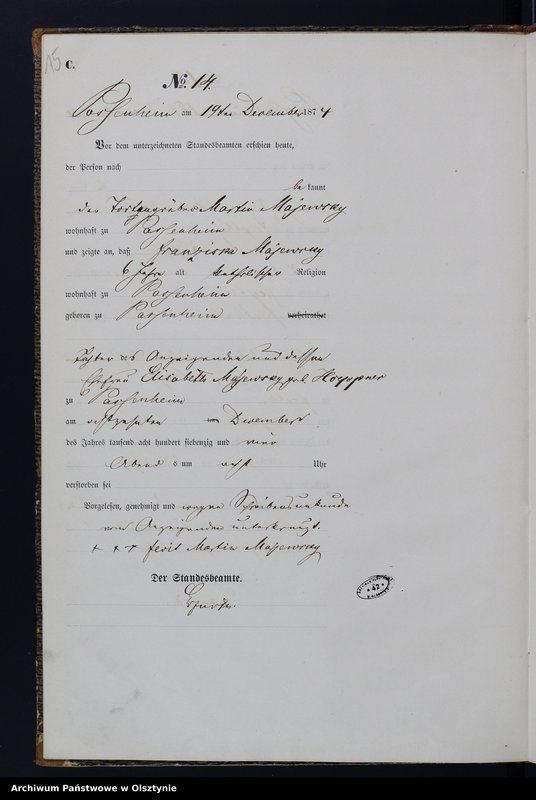 15
C.
No. 14.
Passenheim am 19ten December 1874
Vor dem unterzeichneten Standesbeamten erschien heute,
der Person nach
be kannt
der Martin Majewsky
wohnhaft zu Passenheim
und zeigte an, daß Franziska Majewsky
6 Jahre alt katholischer Religion
wohnhaft zu Passenheim
geboren zu Passenheim verheirathet
Tochter des Anzeigenden und dessen
Ehefrau Elisabeth Majewsky geb. Hoeppner
zu Passenheim
am achtzehnten December
des Jahres tausend acht hundert siebenzig und vier
Abend s um acht Uhr
verstorben sei
Vorgelesen, genehmigt und wegen Schreibensunkunde
vom Anzeigenden unterkreuzt.
+ + + fecit Martin Majewsky
Der Standesbeamte.
42
Archiwum Państwowe w Olsztynie